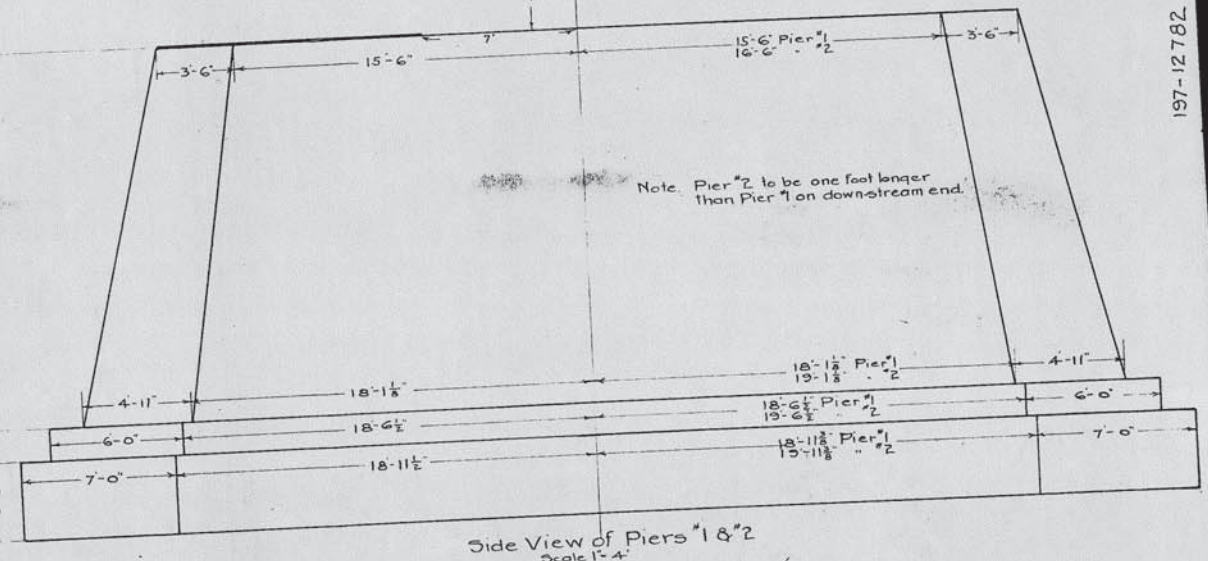 197-12782
7'
3'-6"
15'-6"
15'-6" Pier #1
16'-6" " #2
3'-6"
Note. Pier #2 to be one foot longer
than Pier #1 on down-stream end.
4'-11"
18'-1 1/8"
18'-1 1/8" Pier #1
19'-1 1/8" " #2
4'-11"
6'-0"
18'-6 1/2"
18'-6 1/2" Pier #1
19'-6 1/2" " #2
6'-0"
7'-0"
18'-11 1/2"
18'-11 3/8" Pier #1
19'-11 3/8" " #2
7'-0"
Side View of Piers #1 & #2
Scale 1"-4'